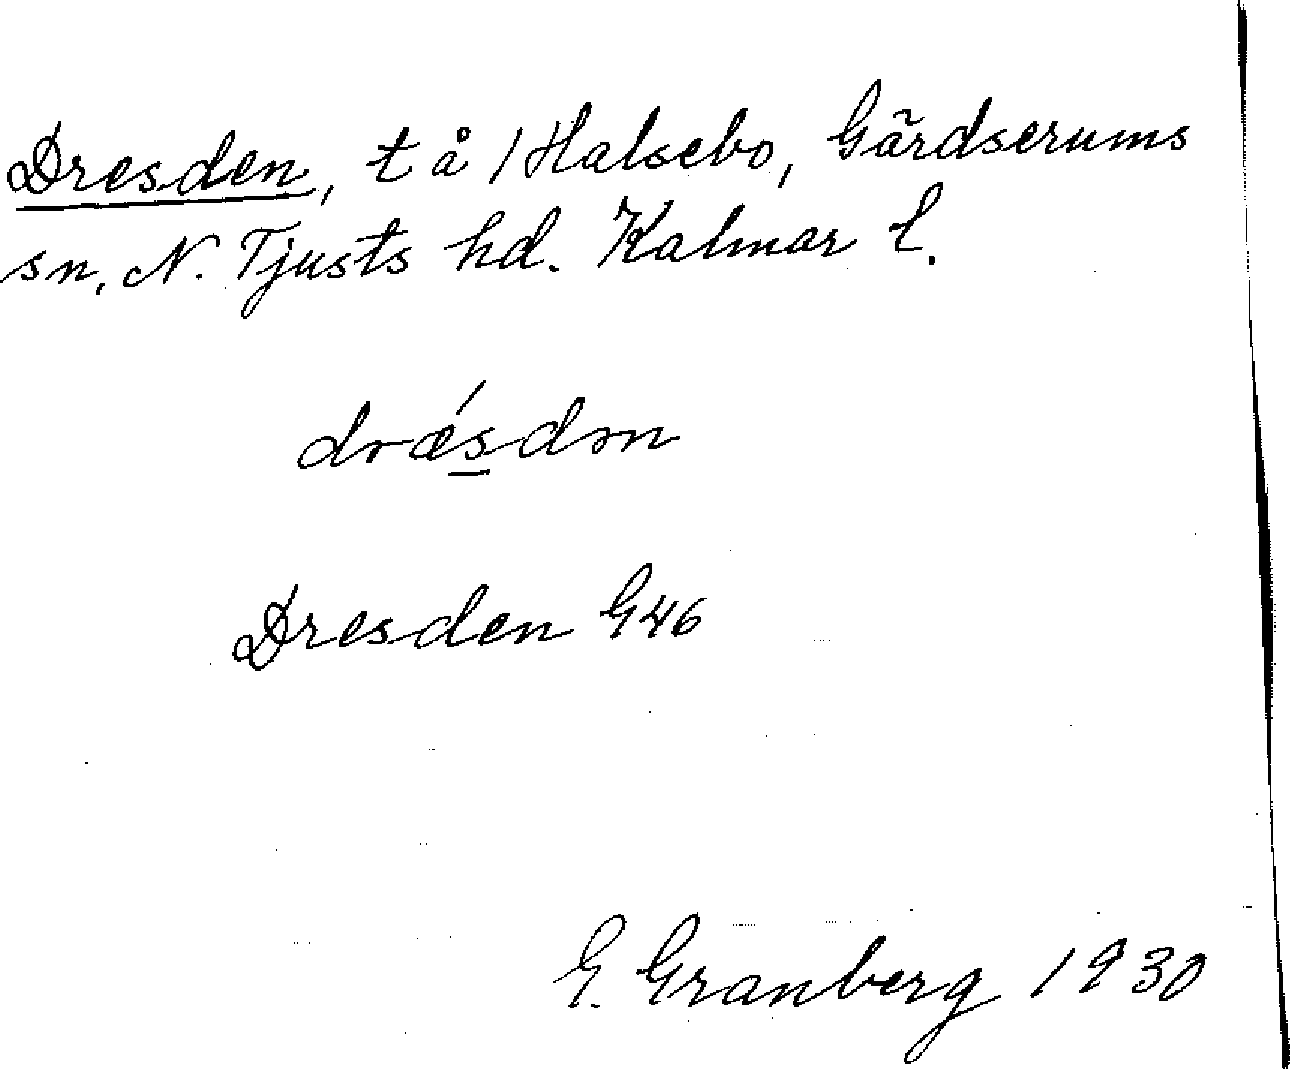 Dresden, t å 1 Halsebo, Gärdserums
sn, N. Tjusts hd. Kalmar l.
dræ´sdən
Dresden G46
G. Granberg 1930